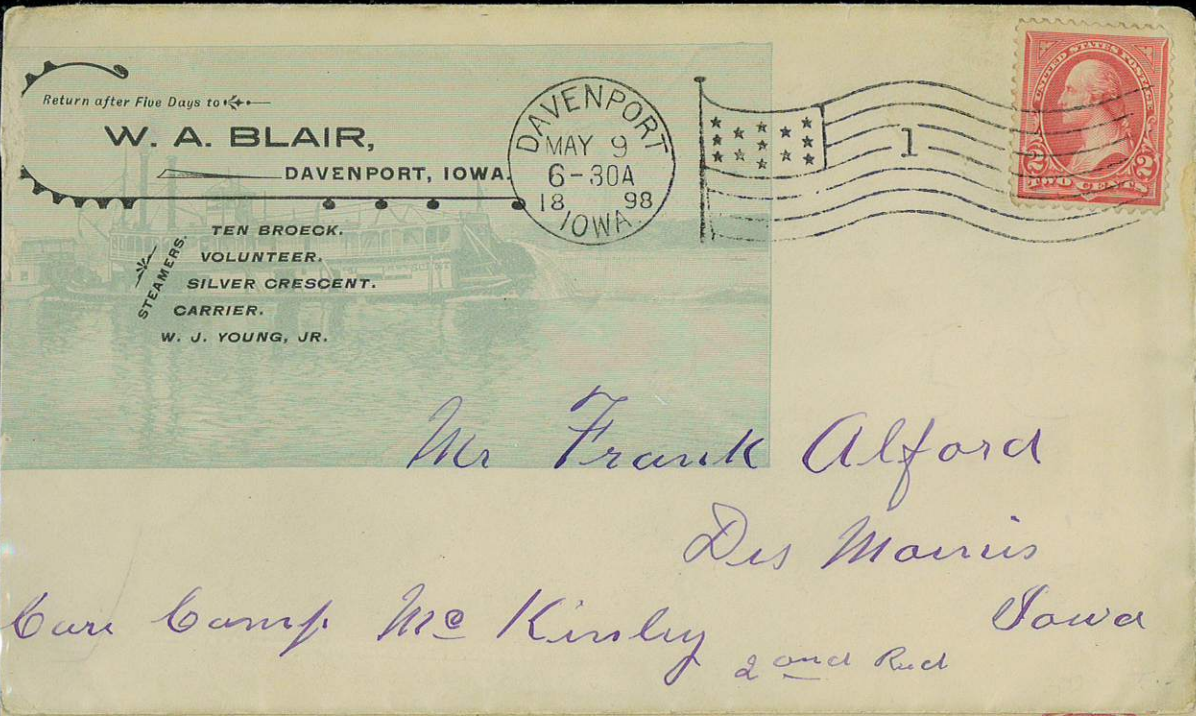 Return after Five Days to
W. A. BLAIR,
DAVENPORT, IOWA.
STEAMERS.
TEN BROECK.
VOLUNTEER.
SILVER CRESCENT.
CARRIER.
W. J. YOUNG, JR.
DAVENPORT
MAY 9
6-30A
18 98
IOWA.
1
UNITED STATES POSTAGE
2 2
TWO CENTS
Mr Frank Alford
Des Moines
Iowa
Care Camp Mc Kinley
2 and